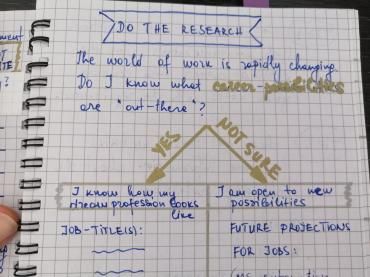 DO THE RESEARCH
The world of work is rapidly changing.
Do I know what career-possibilities
are "out-there"?
YES
NOT SURE
I know how my
dream profession looks
like
JOB-TITLE(S):
I am open to new
possibilities
FUTURE PROJECTIONS
FOR JOBS: